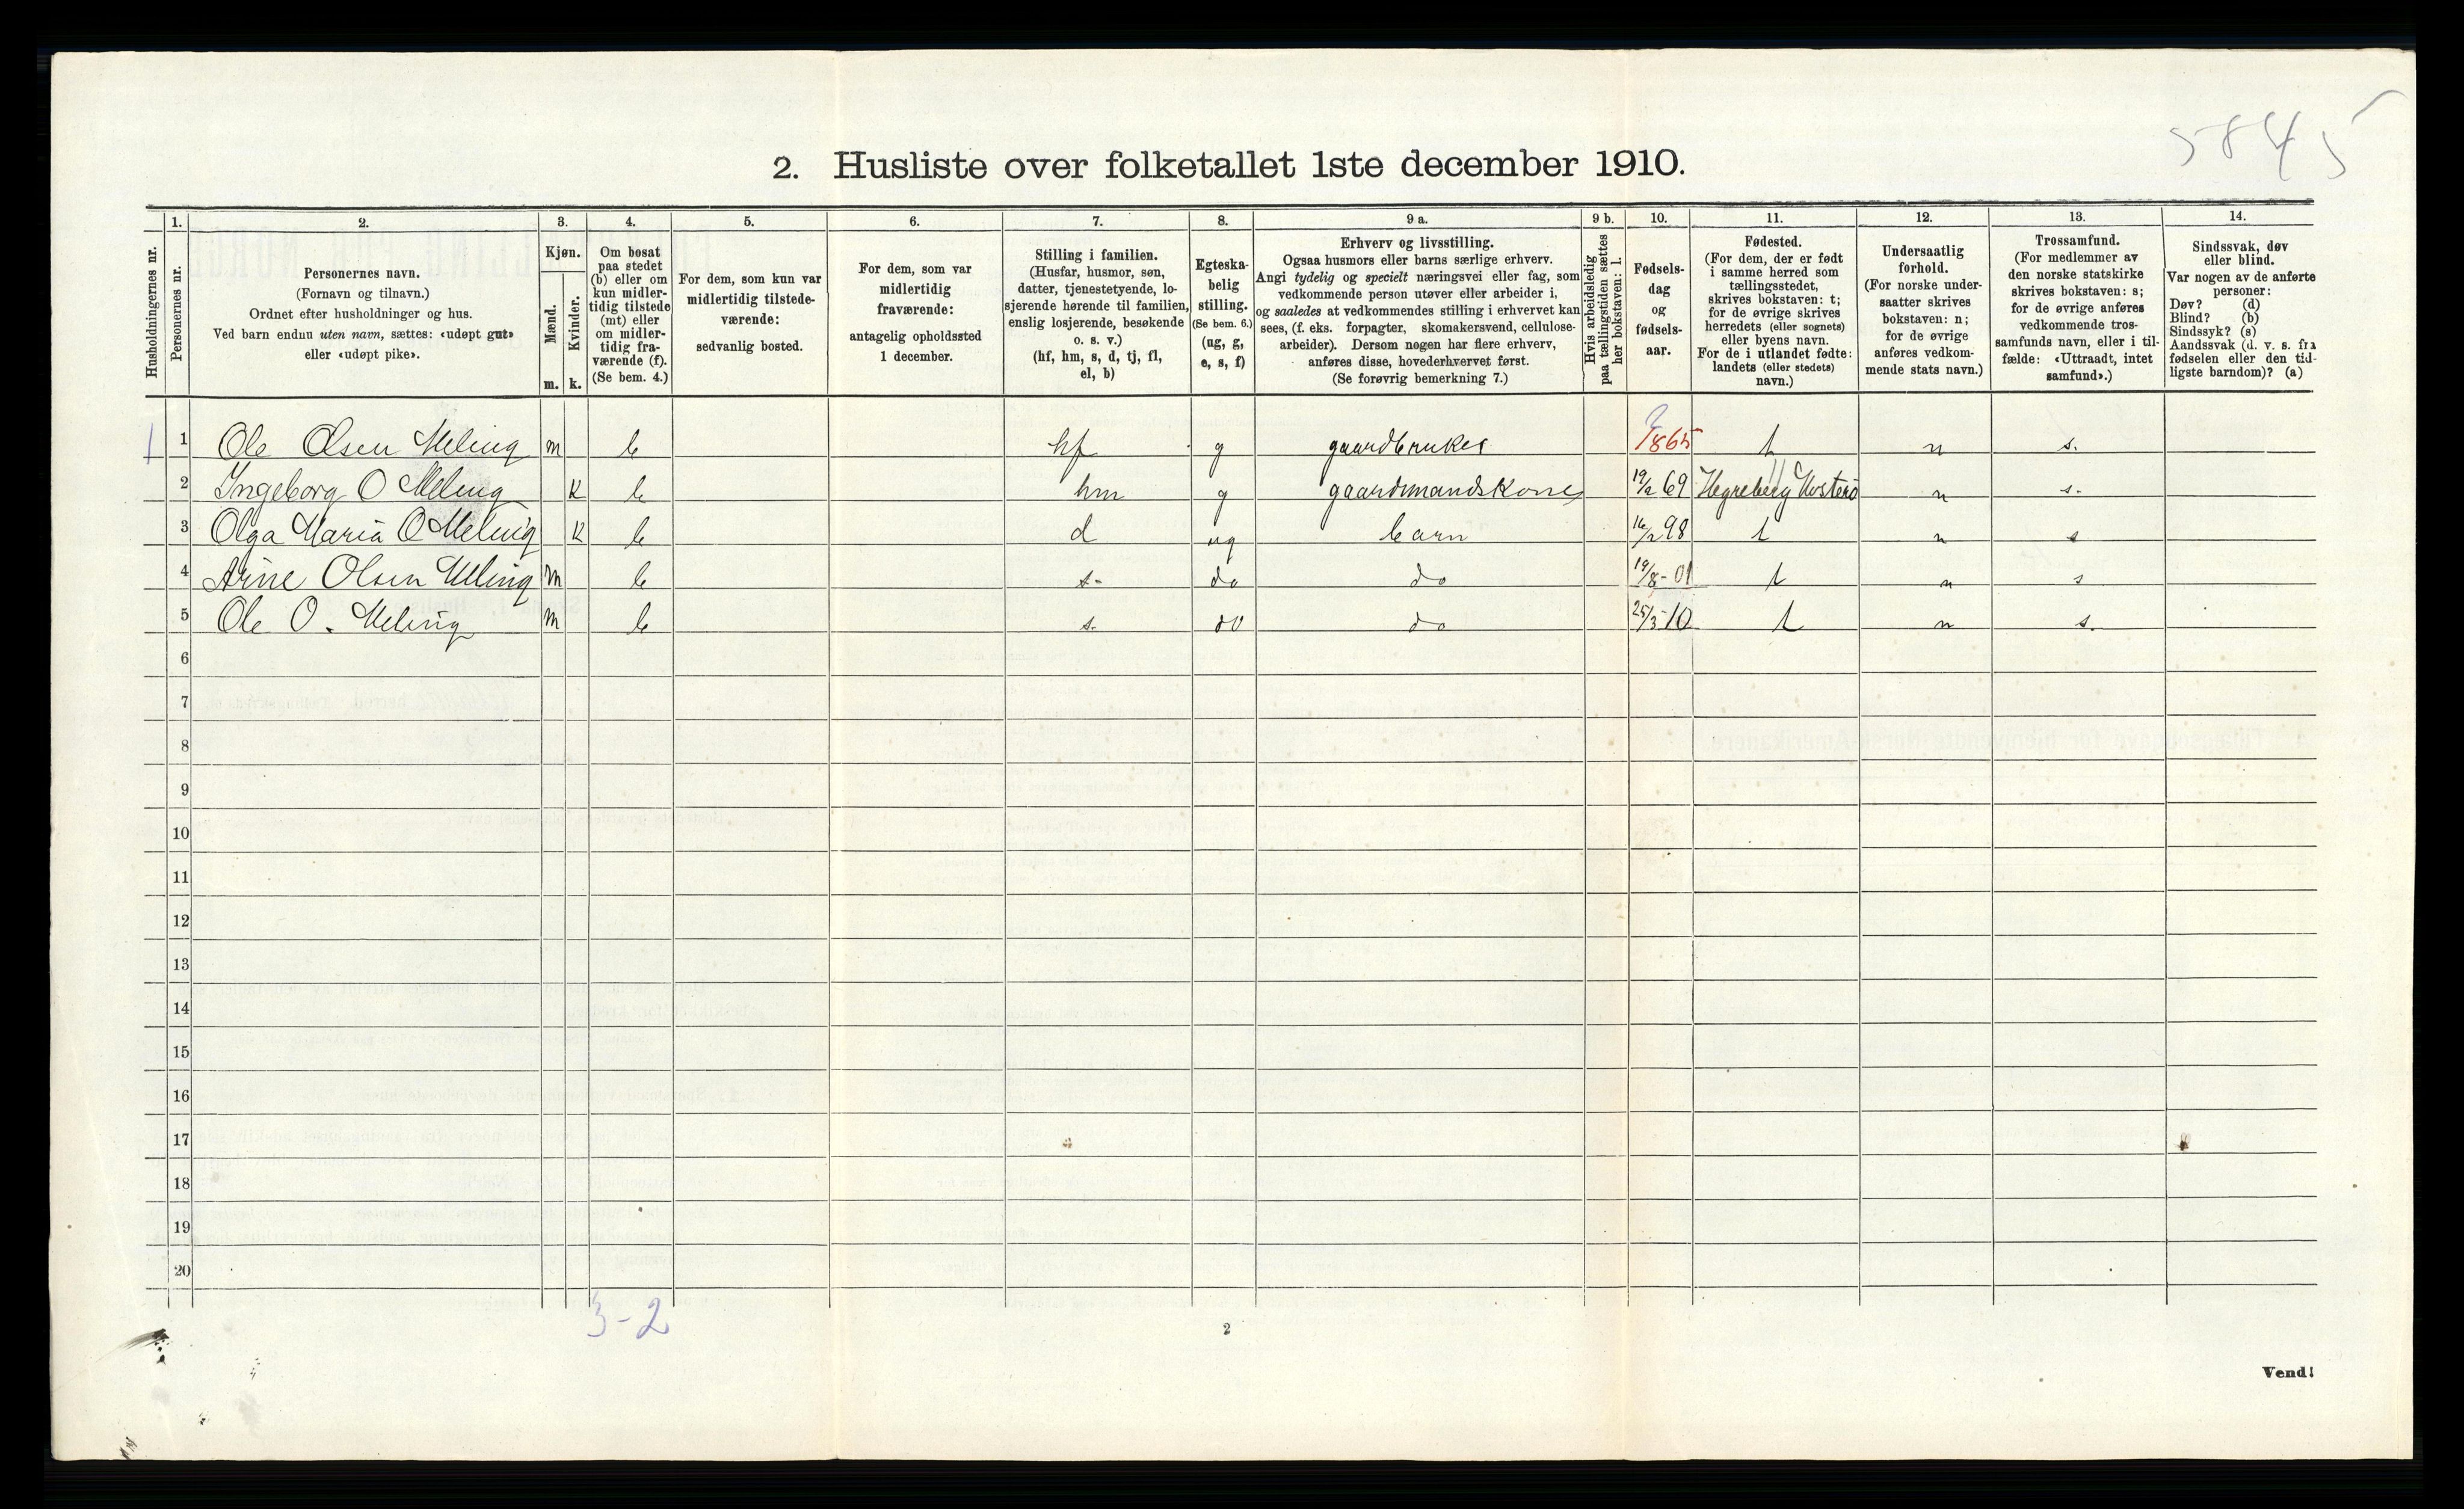 5845
2. Husliste over folketallet 1ste december 1910.
Husholdningernes nr.
1.
Personernes nr.
2.
Personernes navn.
(Fornavn og tilnavn.)
Ordnet efter husholdninger og hus.
Ved barn endnu uten navn, sættes: «udøpt gut»
eller «udøpt pike».
3.
Kjøn.
Mænd.
m.
Kvinder.
k.
4.
Om bosat
paa stedet
(b) eller om
kun midler-
tidig tilstede
(mt) eller
om midler-
tidig fra-
værende (f).
(Se bem. 4.)
5.
For dem, som kun var
midlertidig tilstede-
værende:
sedvanlig bosted.
6.
For dem, som var
midlertidig
fraværende:
antagelig opholdssted
1 december.
7.
Stilling i familien.
(Husfar, husmor, søn,
datter, tjenestetyende, lo-
sjerende hørende til familien,
enslig losjerende, besøkende
o. s. v.)
(hf, hm, s, d, tj, fl,
el, b)
8.
Egteska-
belig
stilling.
(Se bem. 6.)
(ug, g,
e, s, f)
9 a.
Erhverv og livsstilling.
Ogsaa husmors eller barns særlige erhverv.
Angi tydelig og specielt næringsvei eller fag, som
vedkommende person utøver eller arbeider i,
og saaledes at vedkommendes stilling i erhvervet kan
sees, (f. eks. forpagter, skomakersvend, cellulose-
arbeider). Dersom nogen har flere erhverv,
anføres disse, hovederhvervet først.
(Se forøvrig bemerkning 7.)
9 b.
Hvis arbeidsledig
paa tællingstiden sættes
her bokstaven: l.
10.
Fødsels-
dag
og
fødsels-
aar.
11.
Fødested.
(For dem, der er født
i samme herred som
tællingsstedet,
skrives bokstaven: t;
for de øvrige skrives
herredets (eller sognets)
eller byens navn.
For de i utlandet fødte:
landets (eller stedets)
navn.)
12.
Undersaatlig
forhold.
(For norske under-
saatter skrives
bokstaven: n;
for de øvrige
anføres vedkom-
mende stats navn.)
13.
Trossamfund.
(For medlemmer av
den norske statskirke
skrives bokstaven: s;
for de øvrige anføres
vedkommende tros-
samfunds navn, eller i til-
fælde: «Uttraadt, intet
samfund».)
14.
Sindssvak, døv
eller blind.
Var nogen av de anførte
personer:
Døv? (d)
Blind? (b)
Sindssyk? (s)
Aandssvak (d. v. s. fra
fødselen eller den tid-
ligste barndom)? (a)
1 1 Ole Olsen Meling m b hf g gaardbruker 1865 t n s.
2 Ingeborg O Meling K b hm g gaardmandskone 19/2 69 Hegreberg Mosterø n s.
3 Olga Maria O Meling K b d ug barn 16/2 98 t n s
4 Arne Olsen Meling m b s- do do 19/8-01 t n s
5 Ole O. Meling m b s. do do 25/3-10 t n s.
6
7
8
9
10
11
12
13
14
15
16
17
18
19
20
3-2
2
Vend!